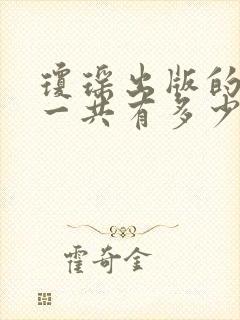 琼瑶出版的
一共有多少
霍奇金